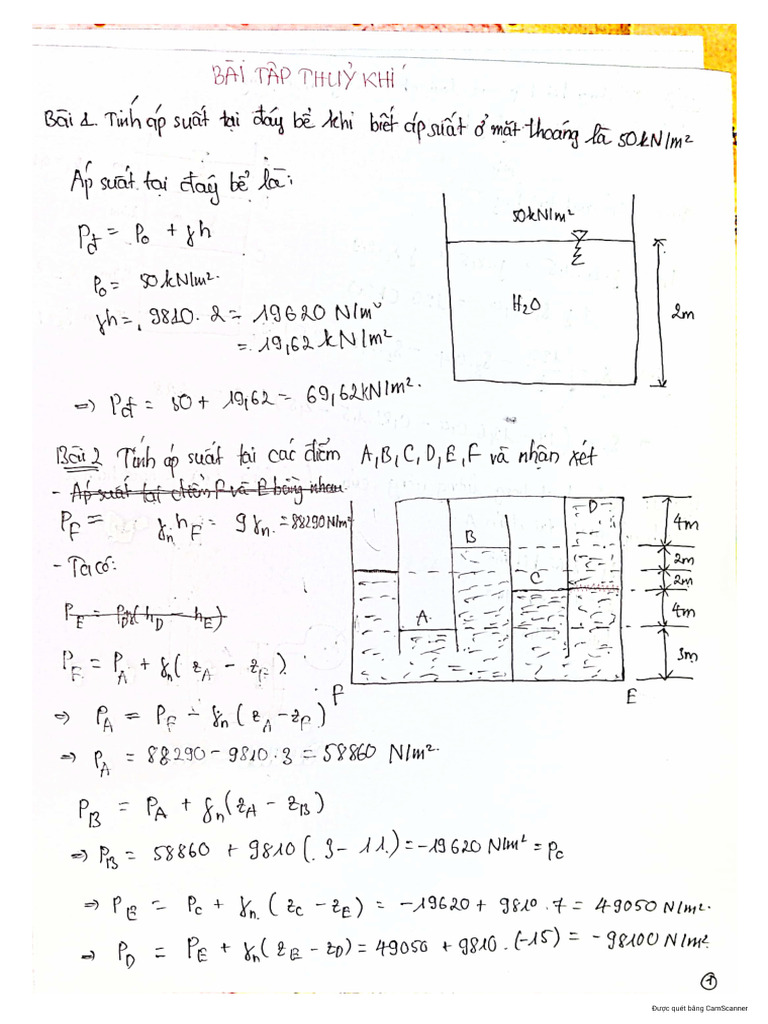 BÀI TẬP THUỶ KHÍ
Bài 1. Tính áp suất tại đáy bể khi biết áp suất ở mặt thoáng là 50kN/m²
Áp suất tại đáy bể là:
P_đ = P_0 + γh
P_0 = 50kN/m².
γh = 9810. 2 = 19620 N/m²
= 19,62 kN/m²
=> P_đ = 50 + 19,62 = 69,62kN/m².
50kN/m²
H₂O
2m
Bài 2 Tính áp suất tại các điểm A,B,C,D,E,F và nhận xét
- Áp suất tại điểm F và E bằng nhau.
P_F = γ_n h_F = 9 γ_n. = 88290N/m²
- Ta có:
P_E = P_D γ_n( h_D - h_E)
P_F = P_A + γ_n( z_A - z_F).
=> P_A = P_F - γ_n( z_A - z_F)
=> P_A = 88290 - 9810.3 = 58860 N/m².
P_B = P_A + γ_n(z_A - z_B)
=> P_B = 58860 + 9810(. 3 - 11.) = -19620 N/m² = P_C
=> P_E = P_C + γ_n. ( z_C - z_E) = -19620 + 9810.7 = 49050 N/m².
=> P_D = P_E + γ_n( z_E - z_D) = 49050 + 9810.(-15) = - 98100 N/m².
D
B
C
A
F
E
4m
2m
2m
4m
3m
1
Được quét bằng CamScanner